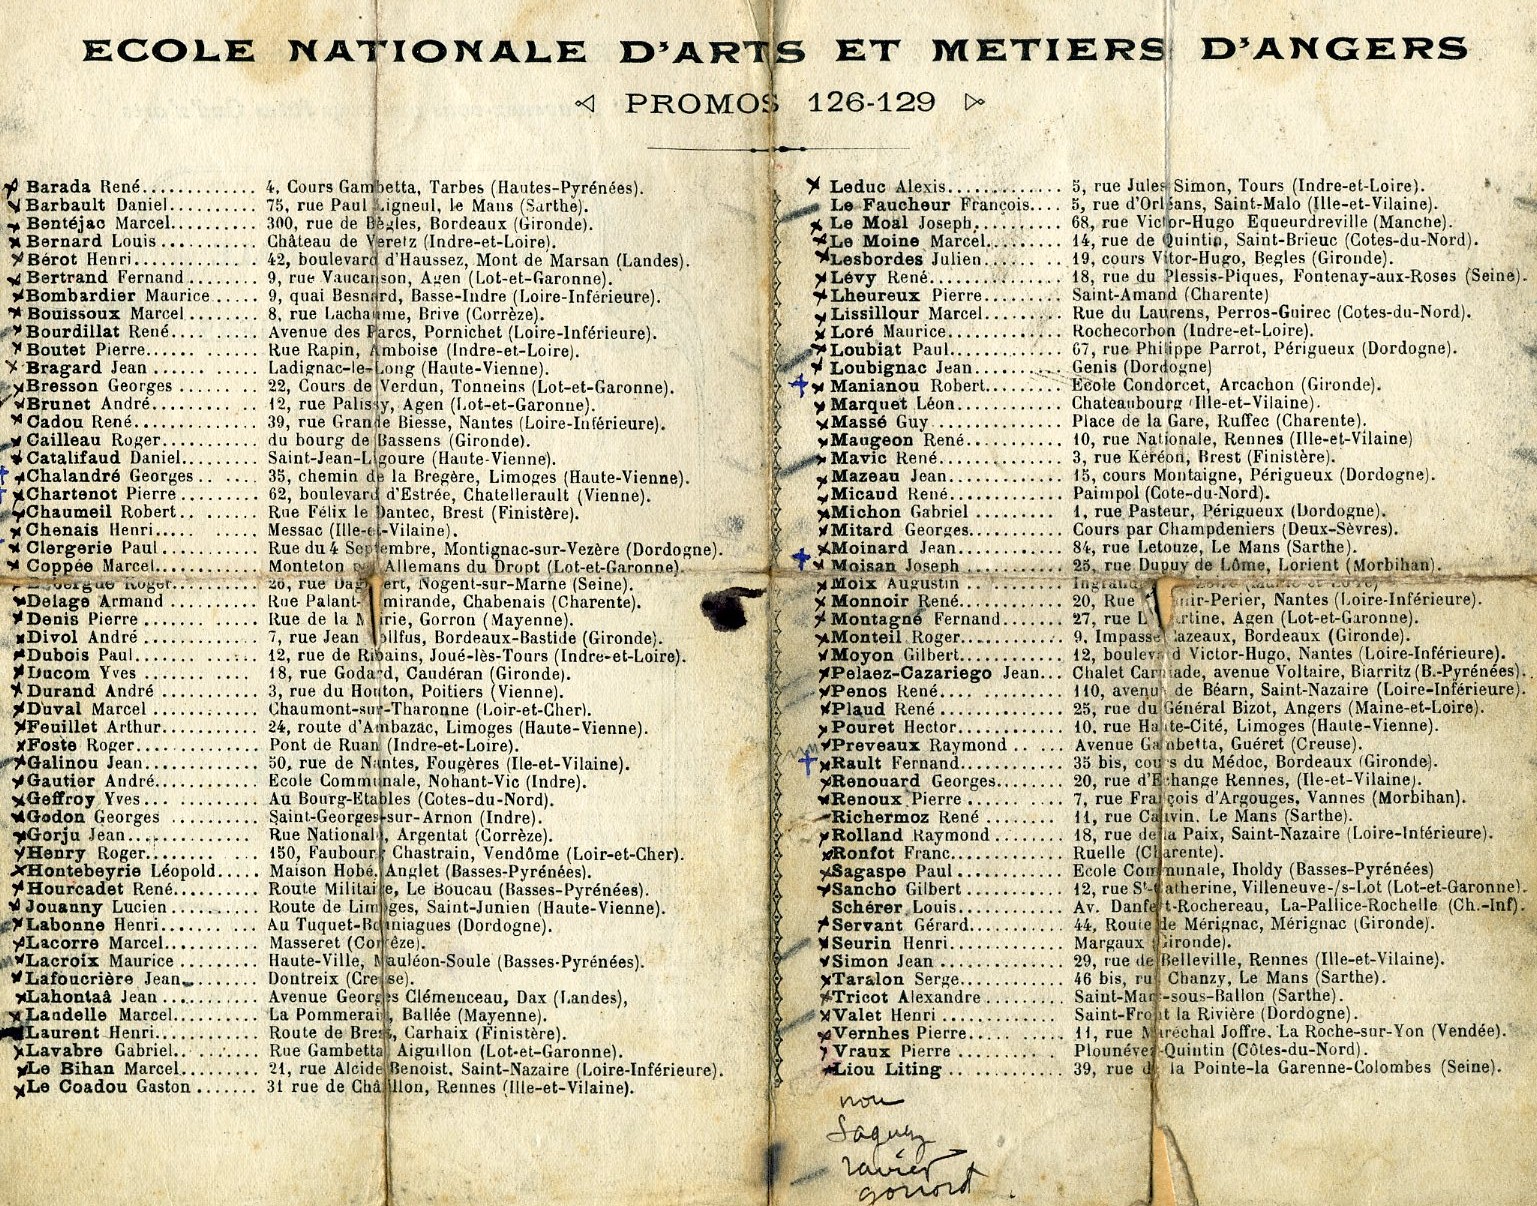 ECOLE NATIONALE D'ARTS ET METIERS D'ANGERS
PROMOS 126-129
Barada René............ 4, Cours Gambetta, Tarbes (Hautes-Pyrénées).
Barbault Daniel......... 75, rue Paul Ligneul, le Mans (Sarthe).
Bentéjac Marcel......... 300, rue de Bègles, Bordeaux (Gironde).
Bernard Louis........... Château de Veretz (Indre-et-Loire).
Bérot Henri............. 42, boulevard d'Haussez, Mont de Marsan (Landes).
Bertrand Fernand........ 9, rue Vaucanson, Agen (Lot-et-Garonne).
Bombardier Maurice..... 9, quai Besnard, Basse-Indre (Loire-Inférieure).
Bouissoux Marcel........ 8, rue Lachaume, Brive (Corrèze).
Bourdillat René......... Avenue des Parcs, Pornichet (Loire-Inférieure).
Boutet Pierre........... Rue Rapin, Amboise (Indre-et-Loire).
Bragard Jean............ Ladignac-le-Long (Haute-Vienne).
Bresson Georges......... 22, Cours de Verdun, Tonneins (Lot-et-Garonne).
Brunet André............ 12, rue Palissy, Agen (Lot-et-Garonne).
Cadou René.............. 39, rue Grande Biesse, Nantes (Loire-Inférieure).
Cailleau Roger.......... du bourg de Bassens (Gironde).
Catalifaud Daniel....... Saint-Jean-Ligoure (Haute-Vienne).
Chalandré Georges...... 35, chemin de la Bregère, Limoges (Haute-Vienne).
Chartenot Pierre........ 62, boulevard d'Estrée, Chatellerault (Vienne).
Chaumeil Robert......... Rue Félix le Dantec, Brest (Finistère).
Chenais Henri........... Messac (Ille-et-Vilaine).
Clergerie Paul.......... Rue du 4 Septembre, Montignac-sur-Vezère (Dordogne).
Coppée Marcel........... Monteton Allemans du Dropt (Lot-et-Garonne).
Roger............ 26, rue Nogent-sur-Marne (Seine).
Delage Armand.......... Rue Chabenais (Charente).
Denis Pierre............ Rue de la Gorron (Mayenne).
Divol André............. 7, rue Jean Bordeaux-Bastide (Gironde).
Dubois Paul............. 12, rue de Ribains, Joué-lès-Tours (Indre-et-Loire).
Ducom Yves............. 18, rue Godard, Caudéran (Gironde).
Durand André........... 3, rue du Houton, Poitiers (Vienne).
Duval Marcel............ Chaumont-sur-Tharonne (Loir-et-Cher).
Feuillet Arthur.......... 24, route d'Ambazac, Limoges (Haute-Vienne).
Foste Roger............. Pont de Ruan (Indre-et-Loire).
Galinou Jean............ 50, rue de Nantes, Fougères (Ile-et-Vilaine).
Gautier André........... Ecole Communale, Nohant-Vic (Indre).
Geffroy Yves............ Au Bourg-Etables (Cotes-du-Nord).
Godon Georges.......... Saint-Georges-sur-Arnon (Indre).
Gorju Jean.............. Rue Nationale, Argentat (Corrèze).
Henry Roger............. 150, Faubourg Chastrain, Vendôme (Loir-et-Cher).
Hontebeyrie Léopold..... Maison Hobé, Anglet (Basses-Pyrénées).
Hourcadet René.......... Route Militaire, Le Boucau (Basses-Pyrénées).
Jouanny Lucien.......... Route de Limoges, Saint-Junien (Haute-Vienne).
Labonne Henri........... Au Tuquet-Boniagues (Dordogne).
Lacorre Marcel.......... Masseret (Corrèze).
Lacroix Maurice......... Haute-Ville, Mauléon-Soule (Basses-Pyrénées).
Lafoucrière Jean........ Dontreix (Creuse).
Lahontaâ Jean.......... Avenue Georges Clémenceau, Dax (Landes),
Landelle Marcel......... La Pommerai, Ballée (Mayenne).
Laurent Henri........... Route de Brest, Carhaix (Finistère).
Lavabre Gabriel......... Rue Gambetta, Aiguillon (Lot-et-Garonne).
Le Bihan Marcel......... 21, rue Alcide Benoist, Saint-Nazaire (Loire-Inférieure).
Le Coadou Gaston....... 31 rue de Châtillon, Rennes (Ille-et-Vilaine).
Leduc Alexis............ 5, rue Jules Simon, Tours (Indre-et-Loire).
Le Faucheur François.... 5, rue d'Orléans, Saint-Malo (Ille-et-Vilaine).
Le Moal Joseph.......... 68, rue Victor-Hugo Equeurdreville (Manche).
Le Moine Marcel......... 14, rue de Quintin, Saint-Brieuc (Cotes-du-Nord).
Lesbordes Julien........ 19, cours Vitor-Hugo, Begles (Gironde).
Lévy René............... 18, rue du Plessis-Piques, Fontenay-aux-Roses (Seine).
Lheureux Pierre......... Saint-Amand (Charente)
Lissillour Marcel........ Rue du Laurens, Perros-Guirec (Cotes-du-Nord).
Loré Maurice............ Rochecorbon (Indre-et-Loire).
Loubiat Paul............ 67, rue Philippe Parrot, Périgueux (Dordogne).
Loubignac Jean.......... Genis (Dordogne)
Manianou Robert........ Ecole Condorcet, Arcachon (Gironde).
Marquet Léon........... Chateaubourg (Ille-et-Vilaine).
Massé Guy.............. Place de la Gare, Ruffec (Charente).
Maugeon René........... 10, rue Nationale, Rennes (Ille-et-Vilaine)
Mavic René.............. 3, rue Kéréon, Brest (Finistère).
Mazeau Jean............ 15, cours Montaigne, Périgueux (Dordogne).
Micaud René............ Paimpol (Cote-du-Nord).
Michon Gabriel.......... 1, rue Pasteur, Périgueux (Dordogne).
Mitard Georges.......... Cours par Champdeniers (Deux-Sèvres).
Moinard Jean............ 84, rue Letouze, Le Mans (Sarthe).
Moisan Joseph........... 25, rue Dupuy de Lôme, Lorient (Morbihan).
Moix Augustin........... Ingrandes
Monnoir René........... 20, Rue Nantes (Loire-Inférieure).
Montagné Fernand....... 27, rue Agen (Lot-et-Garonne).
Monteil Roger........... 9, Impasse Cazeaux, Bordeaux (Gironde).
Moyon Gilbert........... 12, boulevard Victor-Hugo, Nantes (Loire-Inférieure).
Pelaez-Cazariego Jean... Chalet avenue Voltaire, Biarritz (B.-Pyrénées).
Penos René.............. 110, avenue de Béarn, Saint-Nazaire (Loire-Inférieure).
Plaud René.............. 25, rue du Général Bizot, Angers (Maine-et-Loire).
Pouret Hector........... 10, rue Haute-Cité, Limoges (Haute-Vienne).
Preveaux Raymond...... Avenue Gambetta, Guéret (Creuse).
Rault Fernand........... 35 bis, cours du Médoc, Bordeaux (Gironde).
Renouard Georges....... 20, rue d'Echange Rennes, (Ile-et-Vilaine).
Renoux Pierre........... 7, rue François d'Argouges, Vannes (Morbihan).
Richermoz René......... 11, rue Cauvin, Le Mans (Sarthe).
Rolland Raymond........ 18, rue de la Paix, Saint-Nazaire (Loire-Inférieure).
Ronfot Franc............ Ruelle (Charente).
Sagaspe Paul............ Ecole Communale, Iholdy (Basses-Pyrénées)
Sancho Gilbert.......... 12, rue St-Catherine, Villeneuve-/s-Lot (Lot-et-Garonne).
Schérer Louis........... Av. Danfert-Rochereau, La-Pallice-Rochelle (Ch.-Inf).
Servant Gérard.......... 44, Route de Mérignac, Mérignac (Gironde).
Seurin Henri............ Margaux (Gironde).
Simon Jean............. 29, rue de Belleville, Rennes (Ille-et-Vilaine).
Taralon Serge........... 46 bis, rue Chanzy, Le Mans (Sarthe).
Tricot Alexandre......... Saint-Mars-sous-Ballon (Sarthe).
Valet Henri............. Saint-Front la Rivière (Dordogne).
Vernhes Pierre.......... 11, rue Maréchal Joffre, La Roche-sur-Yon (Vendée).
Vraux Pierre............ Plounévez-Quintin (Côtes-du-Nord).
Liou Liting............. 39, rue de la Pointe-la Garenne-Colombes (Seine).
non